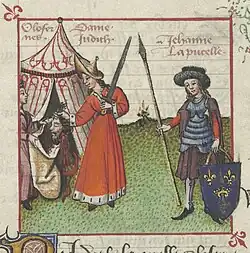 Olofer
nes
Dame
Judith
Jehanne
La pucelle